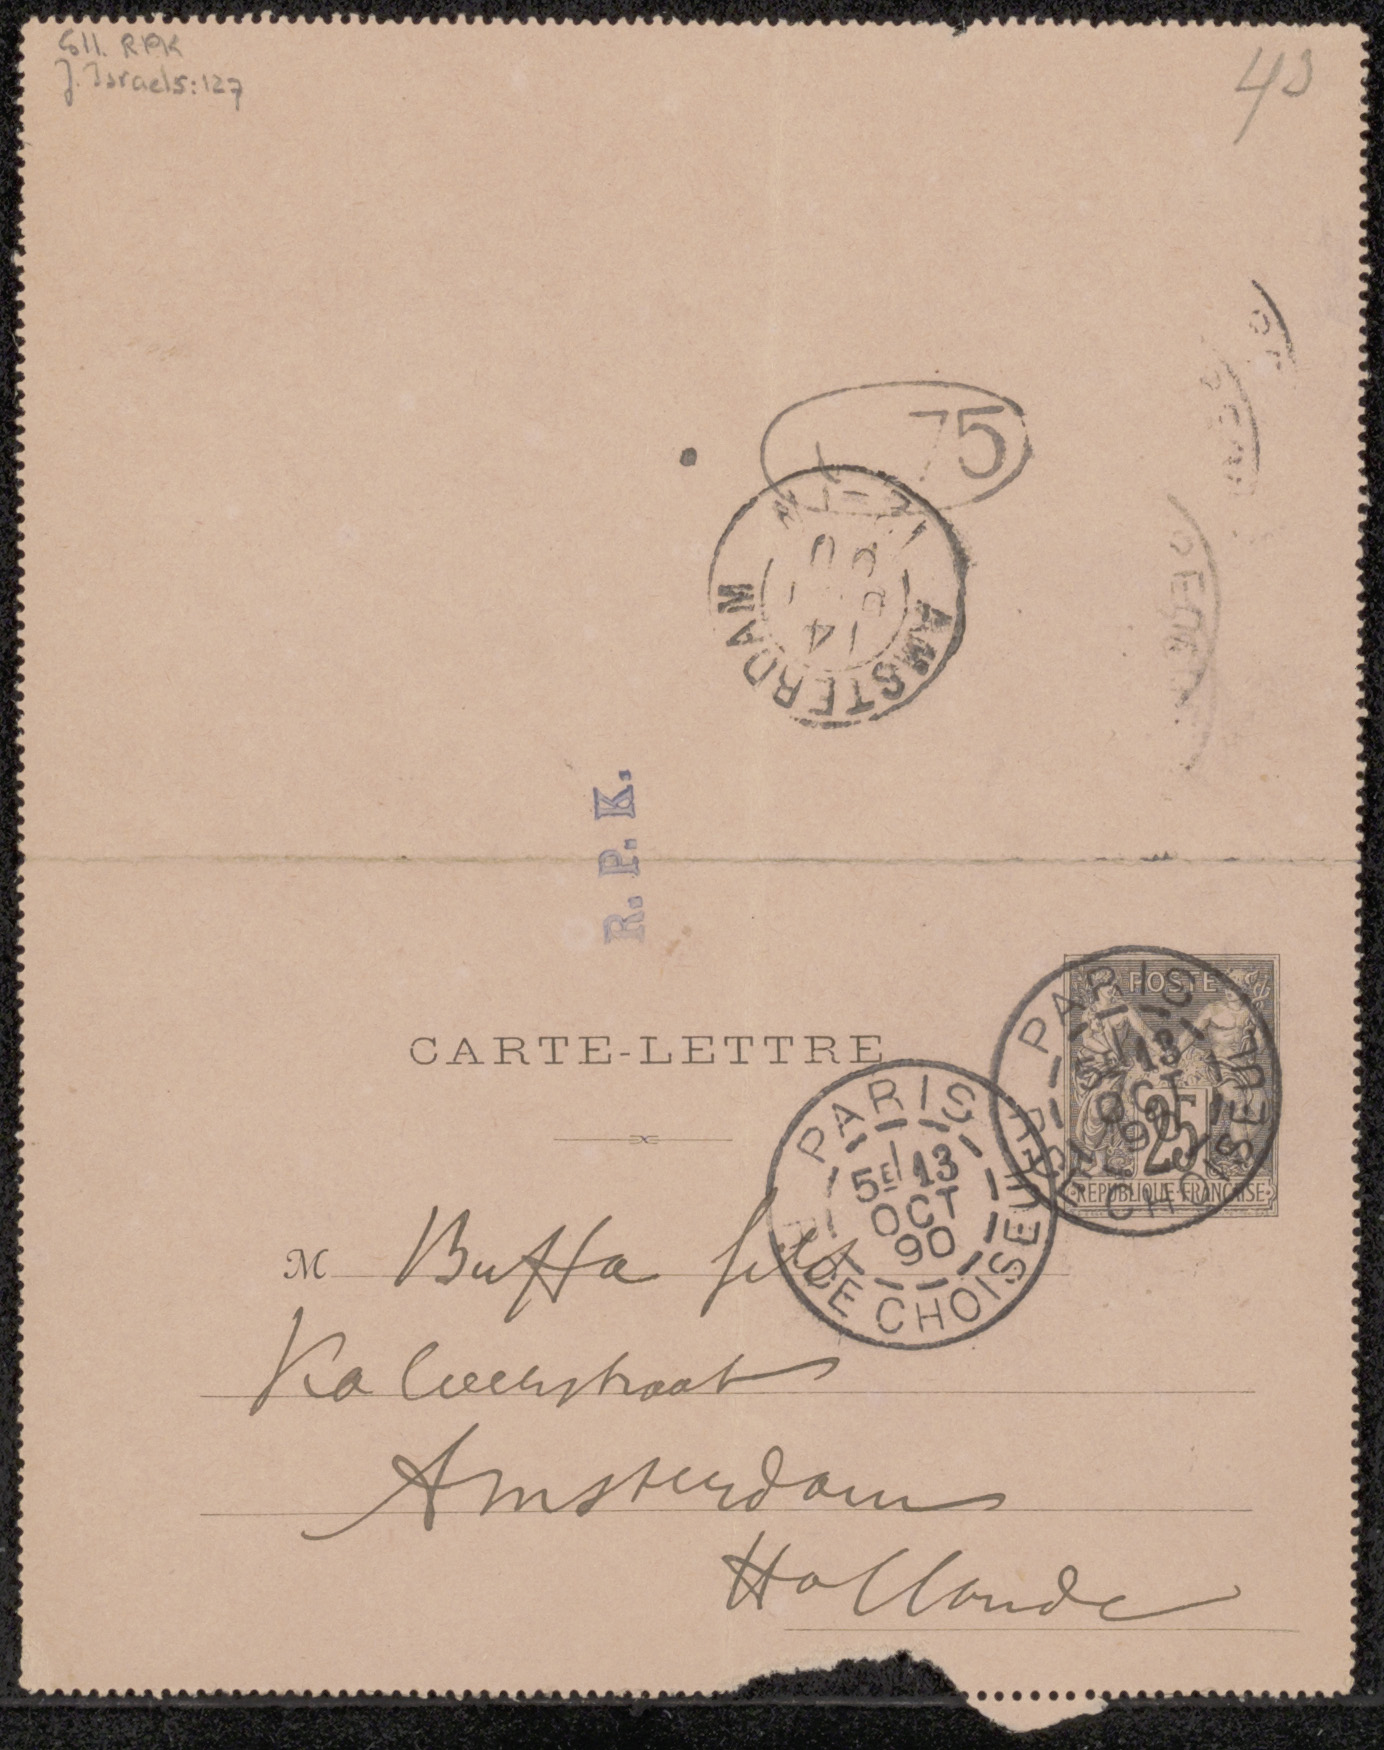 Coll. RPK
J. Israels: 127
43
75
AMSTERDAM
14
R. P. K.
CARTE-LETTRE
POSTE
25
RÉPUBLIQUE FRANÇAISE
PARIS
5E/13
OCT
90
R. DE CHOISEUL
PARIS
5E/13
OCT
90
R. DE CHOISEUL
M Buffa fils
Kalverstraat
Amsterdam
Hollande